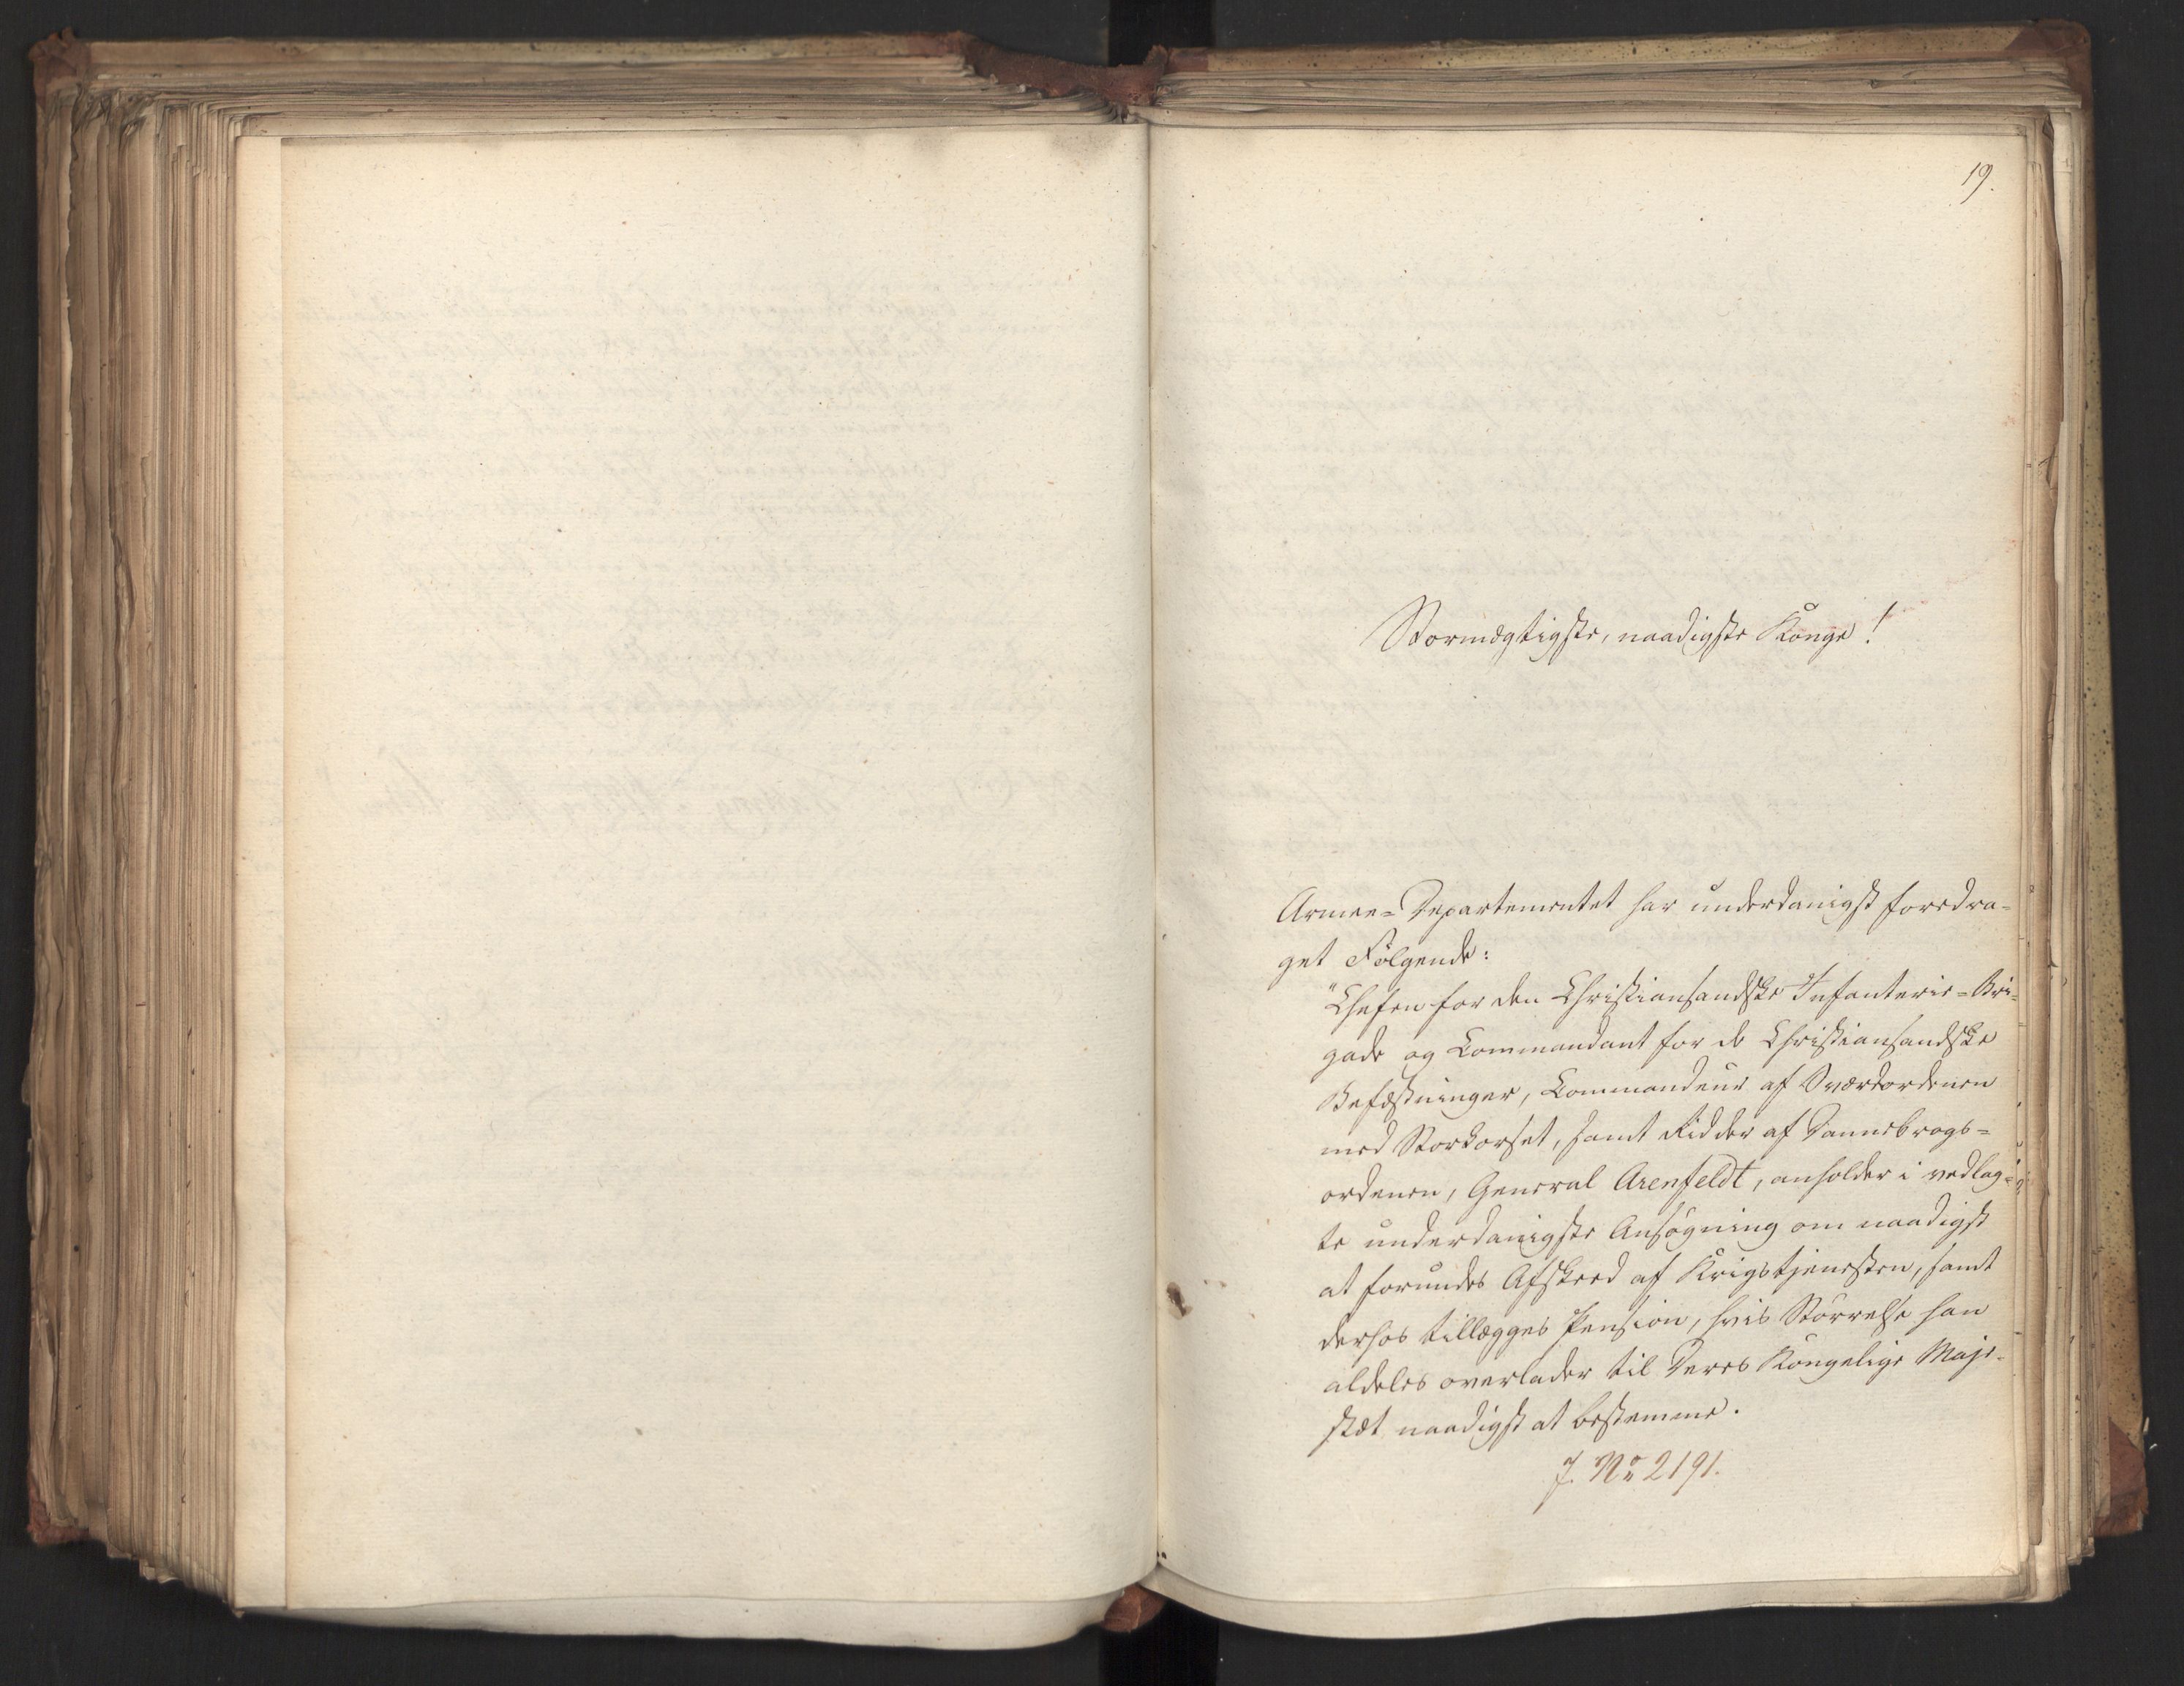 19.
Stormægtigste, naadigste Konge!
Armee=Departementet har underdanigst foredra-
get Følgende:
"Chefen for den Christiansandske Infanterie=Bri-
gade og Commandant for de Christiansandske
Befæstninger, Commandeur af Sværdordenen
med Storkorset, samt Ridder af Dannebrogs=
ordenen, General Arenfeldt, anholder i vedlag-
te underdanigste Ansøgning om naadigst
at forundes Afskeed af Krigstjenesten, samt
derhos tillægges Pension, hvis Størrelse han
aldeles overlader til Deres Kongelige Maje-
stæt naadigst at bestemme.
J. No 2191.